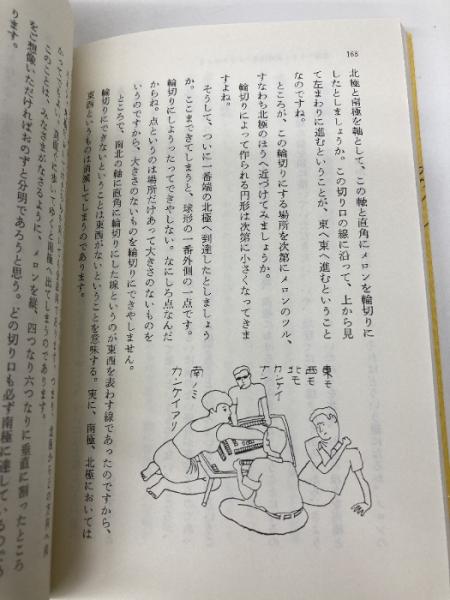 168
北極と南極を軸として、この軸と直角にメロンを輪切りに
したとしましょうか。この切り口の線に沿って、上から見
て左まわりに進むということが、東へ東へ進むということ
なのですね。
ところが、この輪切りにする場所を次第にメロンのツル、
すなわち北極のほうへ近づけてみましょうか。
輪切りによって作られる円形は次第に小さくなってきま
すよね。
そうして、ついに一番端の北極へ到達したとしましょう
か。ここまできてしまうと、球形の一番外側の一点です。
輪切りにしようったってできやしない。なにしろ点なんだ
からね。点というのは場所だけあって大きさのないものを
いうのですから、大きさのないものを輪切りにできやしません。
ところで、南北の軸に直角に輪切りにした線というのが東西を表わす線であったのですから、
輪切りにできないということは東西がないということを意味する。実に、南極、北極においては
東西というものは消滅してしまうのであります。
東モ
西モ
北モ
カンケイ
ナシ
南ノミ
カンケイアリ
南極へ出てしまうのであります。
このことは、みなさまがなさるように、メロンを縦、四つなり六つなりに垂直に割ったところ
をご想像いただければおのずと分明であろうと思う。どの切り口も必ず南極に達している
ります。